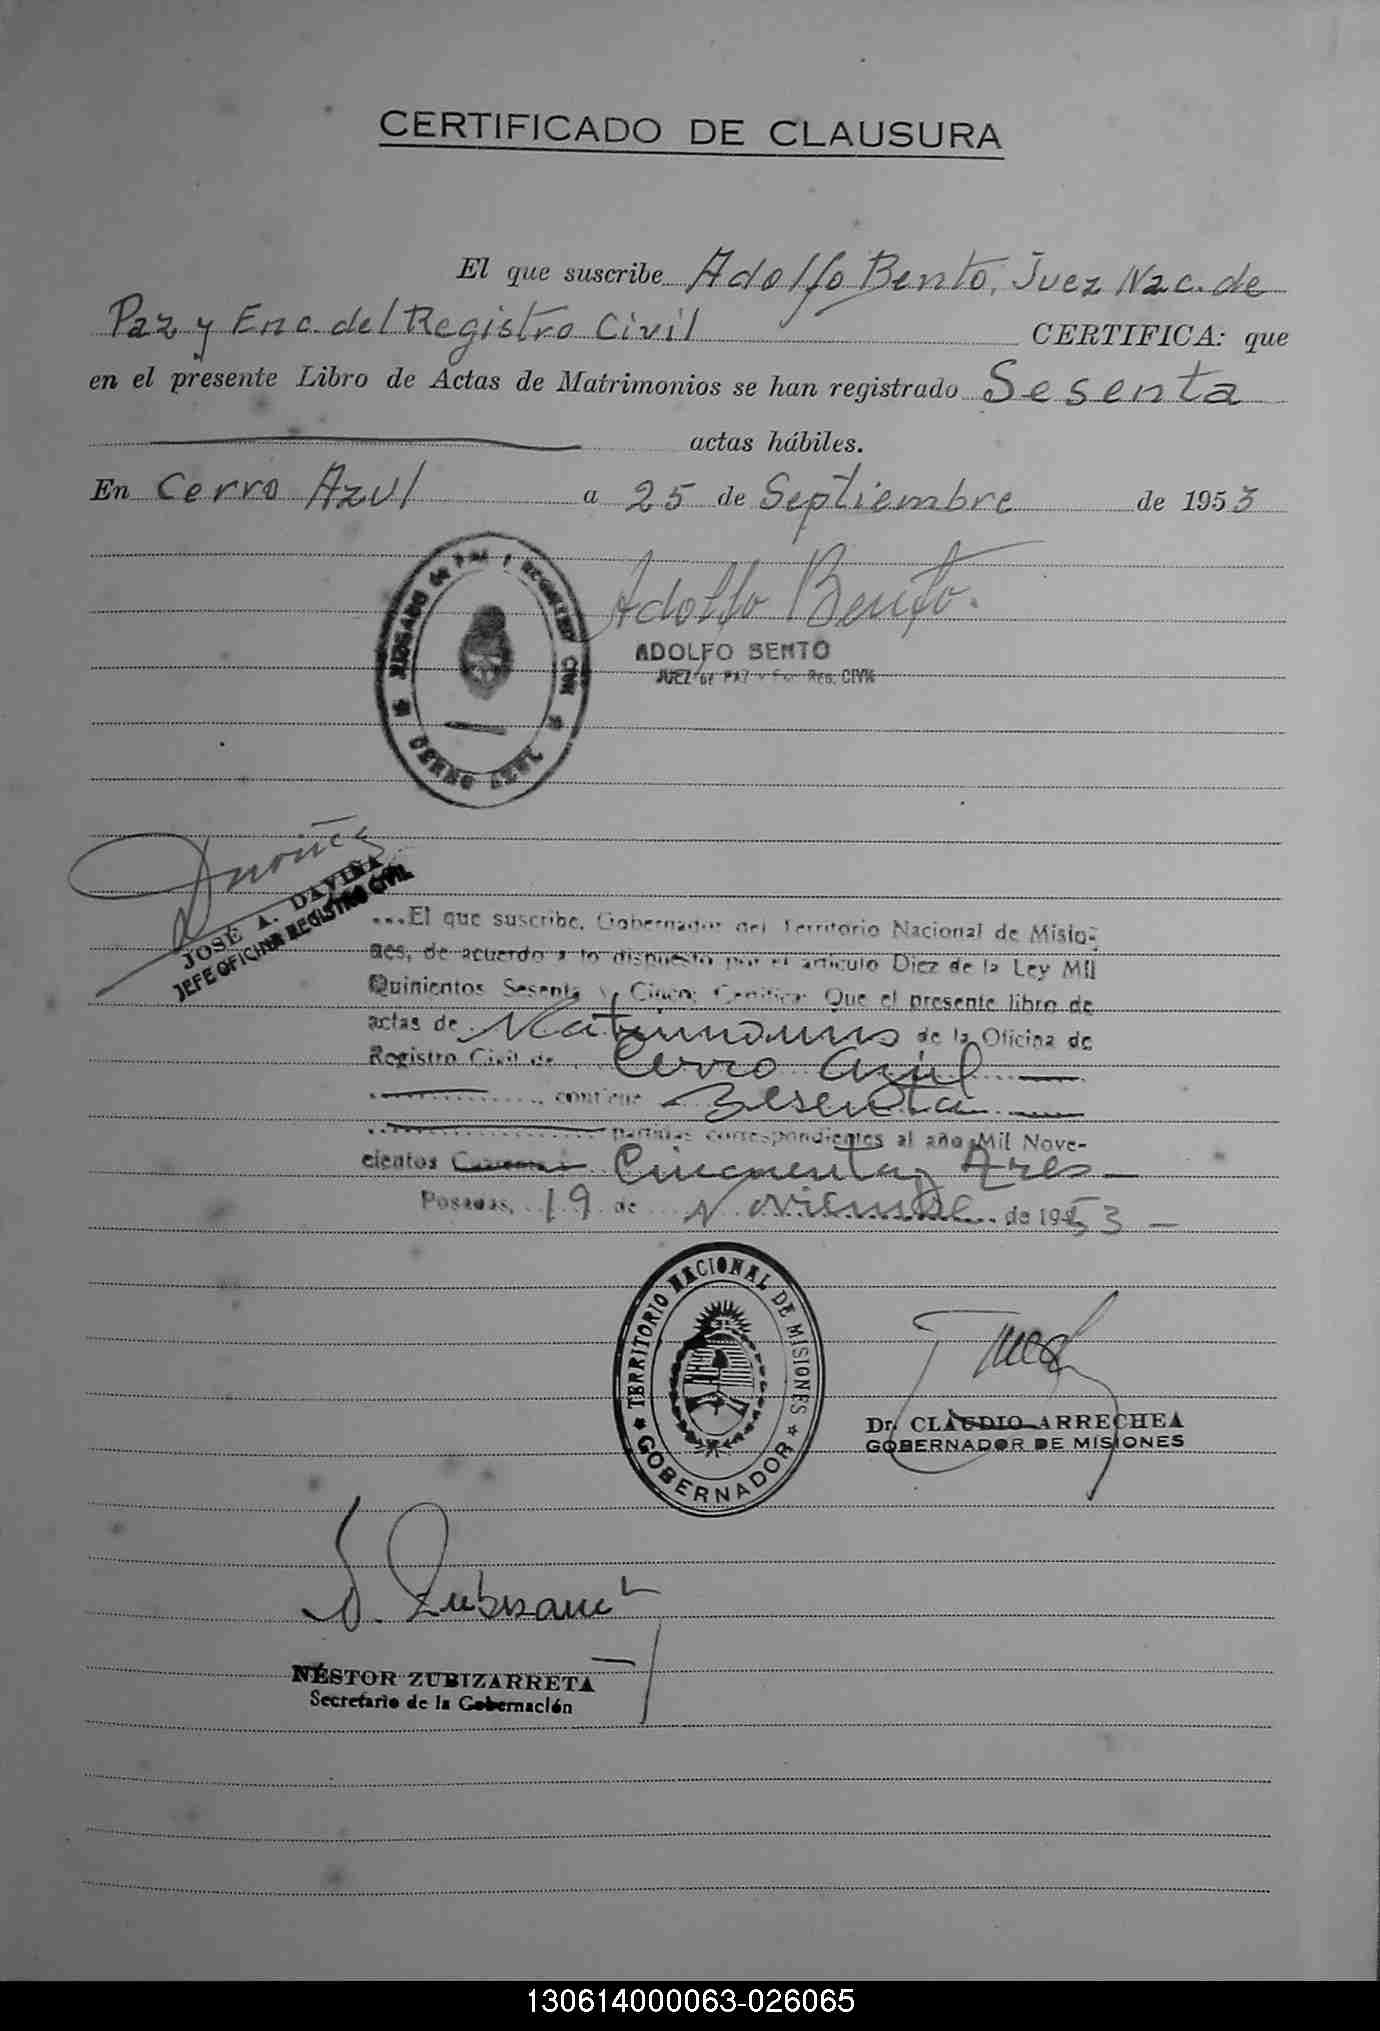 CERTIFICADO DE CLAUSURA
El que suscribe Adolfo Bento, Juez Nac. de
Paz y Enc. del Registro Civil CERTIFICA: que
en el presente Libro de Actas de Matrimonios se han registrado Sesenta
actas hábiles.
En Cerro Azul a 25 de Septiembre de 1953
JUZGADO de PAZ Y REGISTRO CIVIL
CERRO AZUL
Adolfo Bento.
ADOLFO BENTO
JUEZ de PAZ y Enc. REG. CIVIL
JOSÉ A. DAVIÑA
JEFE OFICINA REGISTRO CIVIL
...El que suscribe, Gobernador del Territorio Nacional de Misio-
nes, de acuerdo a lo dispuesto por el artículo Diez de la Ley Mil
Quinientos Sesenta y Cinco; Certifica: Que el presente libro de
actas de Matrimonios de la Oficina de
Registro Civil de Cerro Azul
contiene Sesenta
partidas correspondientes al año Mil Nove-
cientos Cincuenta y Tres
Posadas, 19 de Noviembre de 1953
TERRITORIO NACIONAL DE MISIONES
GOBERNADOR
Dr. CLAUDIO ARRECHEA
GOBERNADOR DE MISIONES
N. Zubizarreta
NÉSTOR ZUBIZARRETA
Secretario de la Gobernación
130614000063-026065